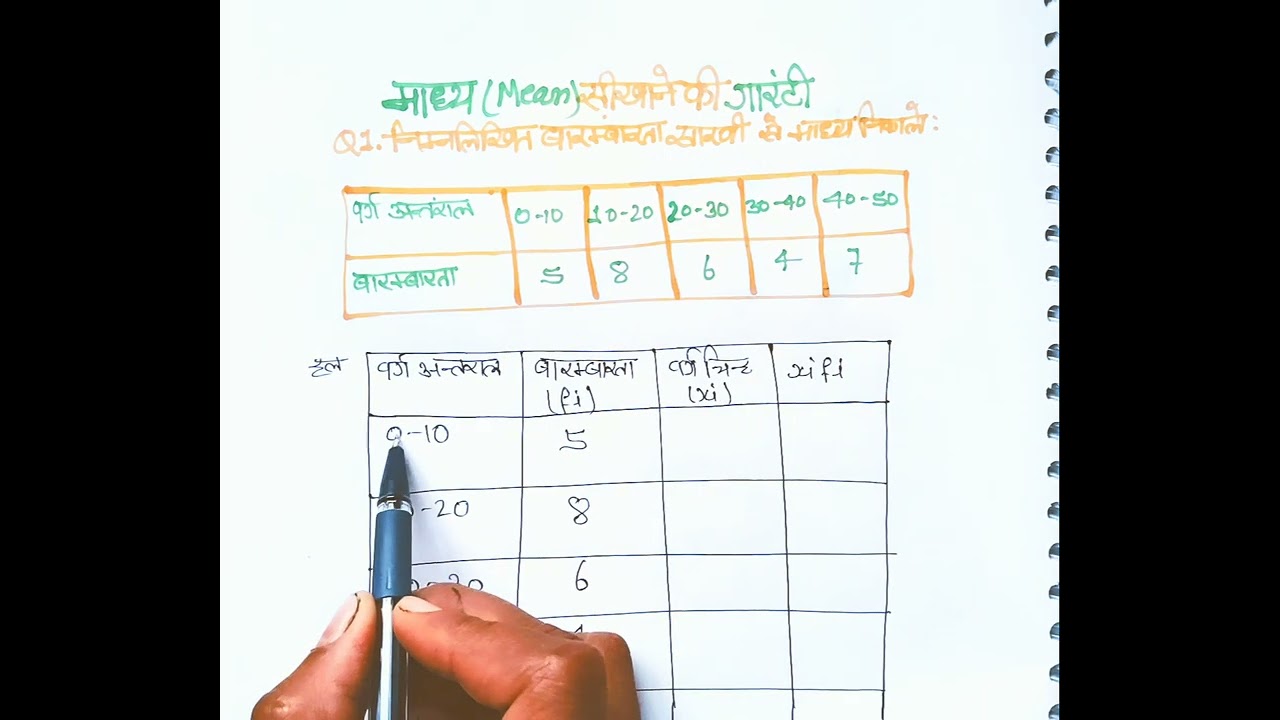 माध्य (Mean) सीखाने की गारंटी
Q1. निम्नलिखित बारम्बारता सारणी से माध्य निकाले:
वर्ग अन्तराल 0-10 10-20 20-30 30-40 40-50
बारम्बारता 5 8 6 4 7
हल वर्ग अन्तराल बारम्बारता (fi) वर्ग चिन्ह (xi) xifi
0-10 5
-20 8
6